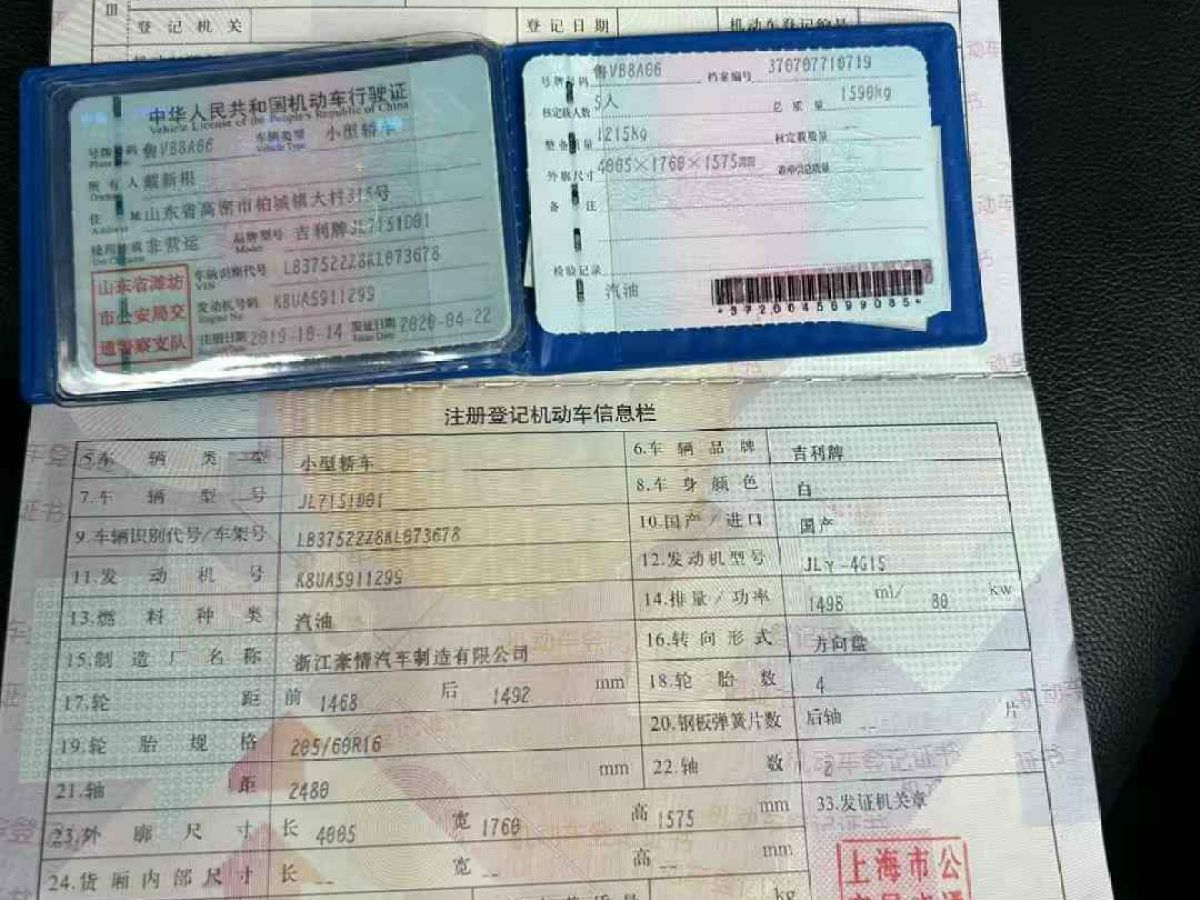 III
登记机关
登记日期
机动车登记编号
中华人民共和国机动车行驶证
Vehicle License of the People's Republic of China
号牌号码 鲁VB8A66 车辆类型 小型轿车
Plate No. Vehicle Type
所有人 戴新根
Owner
住址 山东省高密市柏城镇大村315号
Address
使用性质 非营运 品牌型号 吉利牌JL7151D01
Use Character Model
车辆识别代号 LB37522Z8KL073678
VIN
发动机号码 K8UA5911299
Engine No.
注册日期 2019-10-14 发证日期 2020-04-22
Issue Date
山东省潍坊
市公安局交
通警察支队
号牌号码 鲁VB8A66 档案编号 370707710719
核定载人数 5人 总质量 1590kg
整备质量 1215kg 核定载质量 --
外廓尺寸 4005×1760×1575mm 准牵引总质量
备注
检验记录
汽油
*3720045699085*
注册登记机动车信息栏
5.车辆类型 小型轿车 6.车辆品牌 吉利牌
7.车辆型号 JL7151D01 8.车身颜色 白
9.车辆识别代号/车架号 LB37522Z8KL073678 10.国产/进口 国产
11.发动机号 K8UA5911299 12.发动机型号 JLγ-4G15
13.燃料种类 汽油 14.排量/功率 1498 ml/ 80 kw
15.制造厂名称 浙江豪情汽车制造有限公司 16.转向形式 方向盘
17.轮距 前 1468 后 1492 mm 18.轮胎数 4
19.轮胎规格 205/60R16 20.钢板弹簧片数 后轴 -- 片
21.轴距 2480 mm 22.轴数 2
23.外廓尺寸 长 4005 宽 1760 高 1575 mm 33.发证机关章
24.货厢内部尺寸 长 -- 宽 -- 高 -- mm
上海市公
kg